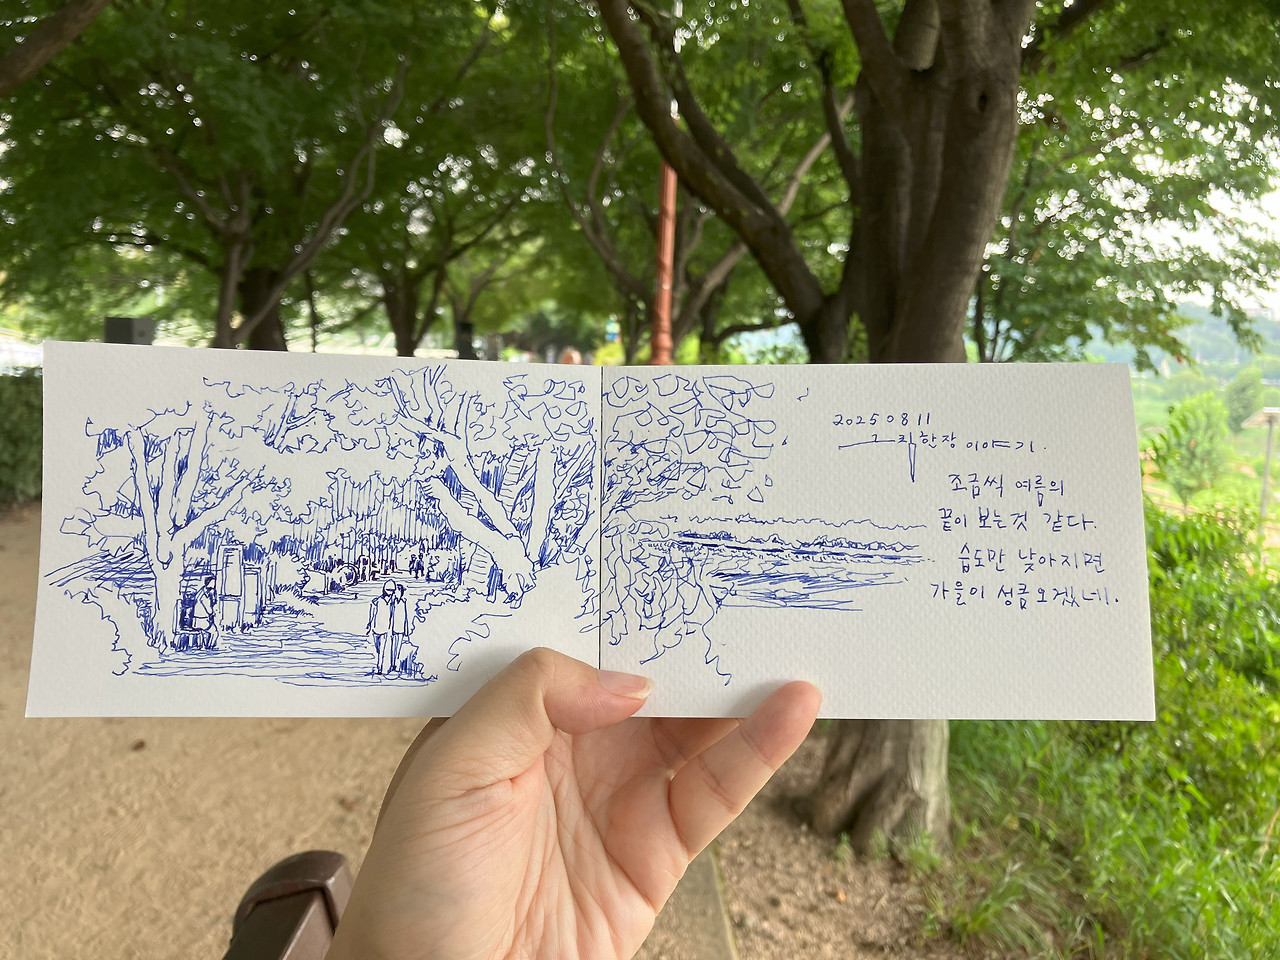 20250811
그림한장 이야기.
조금씩 여름의
끝이 보는것 같다.
습도만 낮아지면
가을이 성큼오겠네.